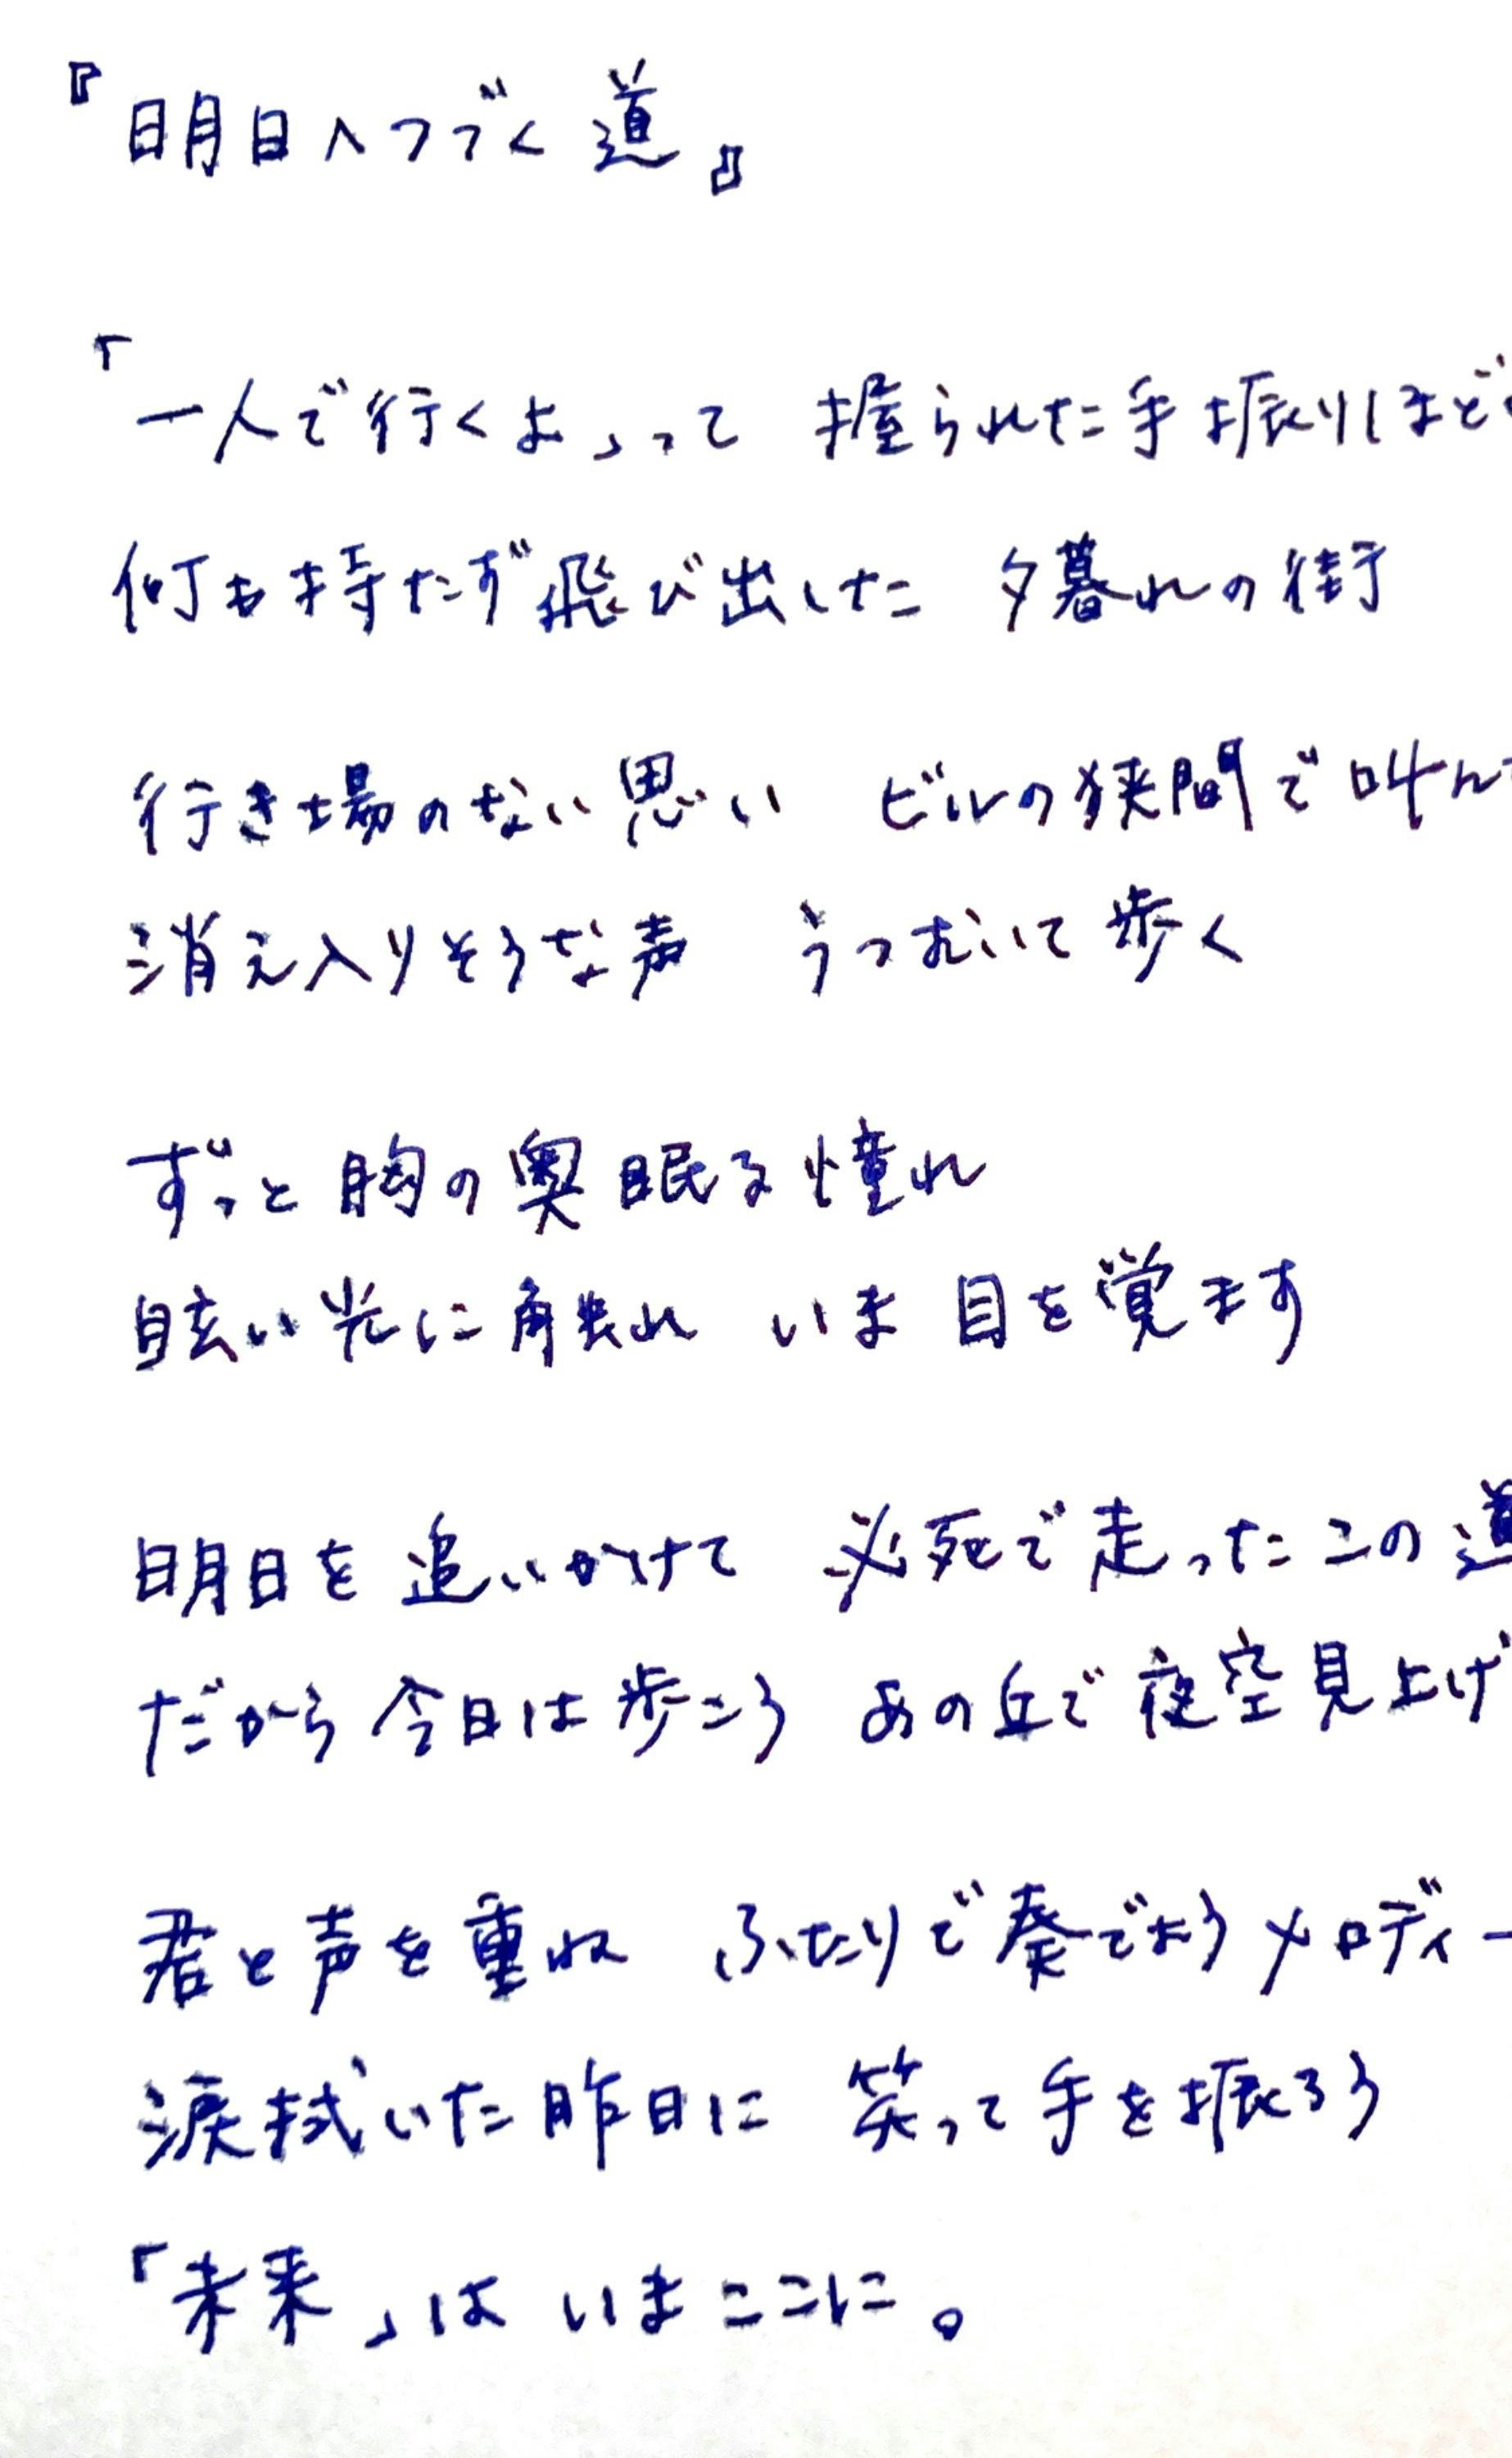 『明日へつづく道』
「一人で行くよ」って 握られた手振りほど
何も持たず飛び出した 夕暮れの街
行き場のない思い ビルの狭間で叫ん
消え入りそうな声 うつむいて歩く
ずっと胸の奥眠る憧れ
眩い光に触れ いま 目を覚ます
明日を追いかけて 必死で走ったこの道
だから今日は歩こう あの丘で夜空見上げ
君と声を重ね ふたりで奏でようメロディー
涙拭いた昨日に 笑って手を振ろう
「未来」は いまここに。